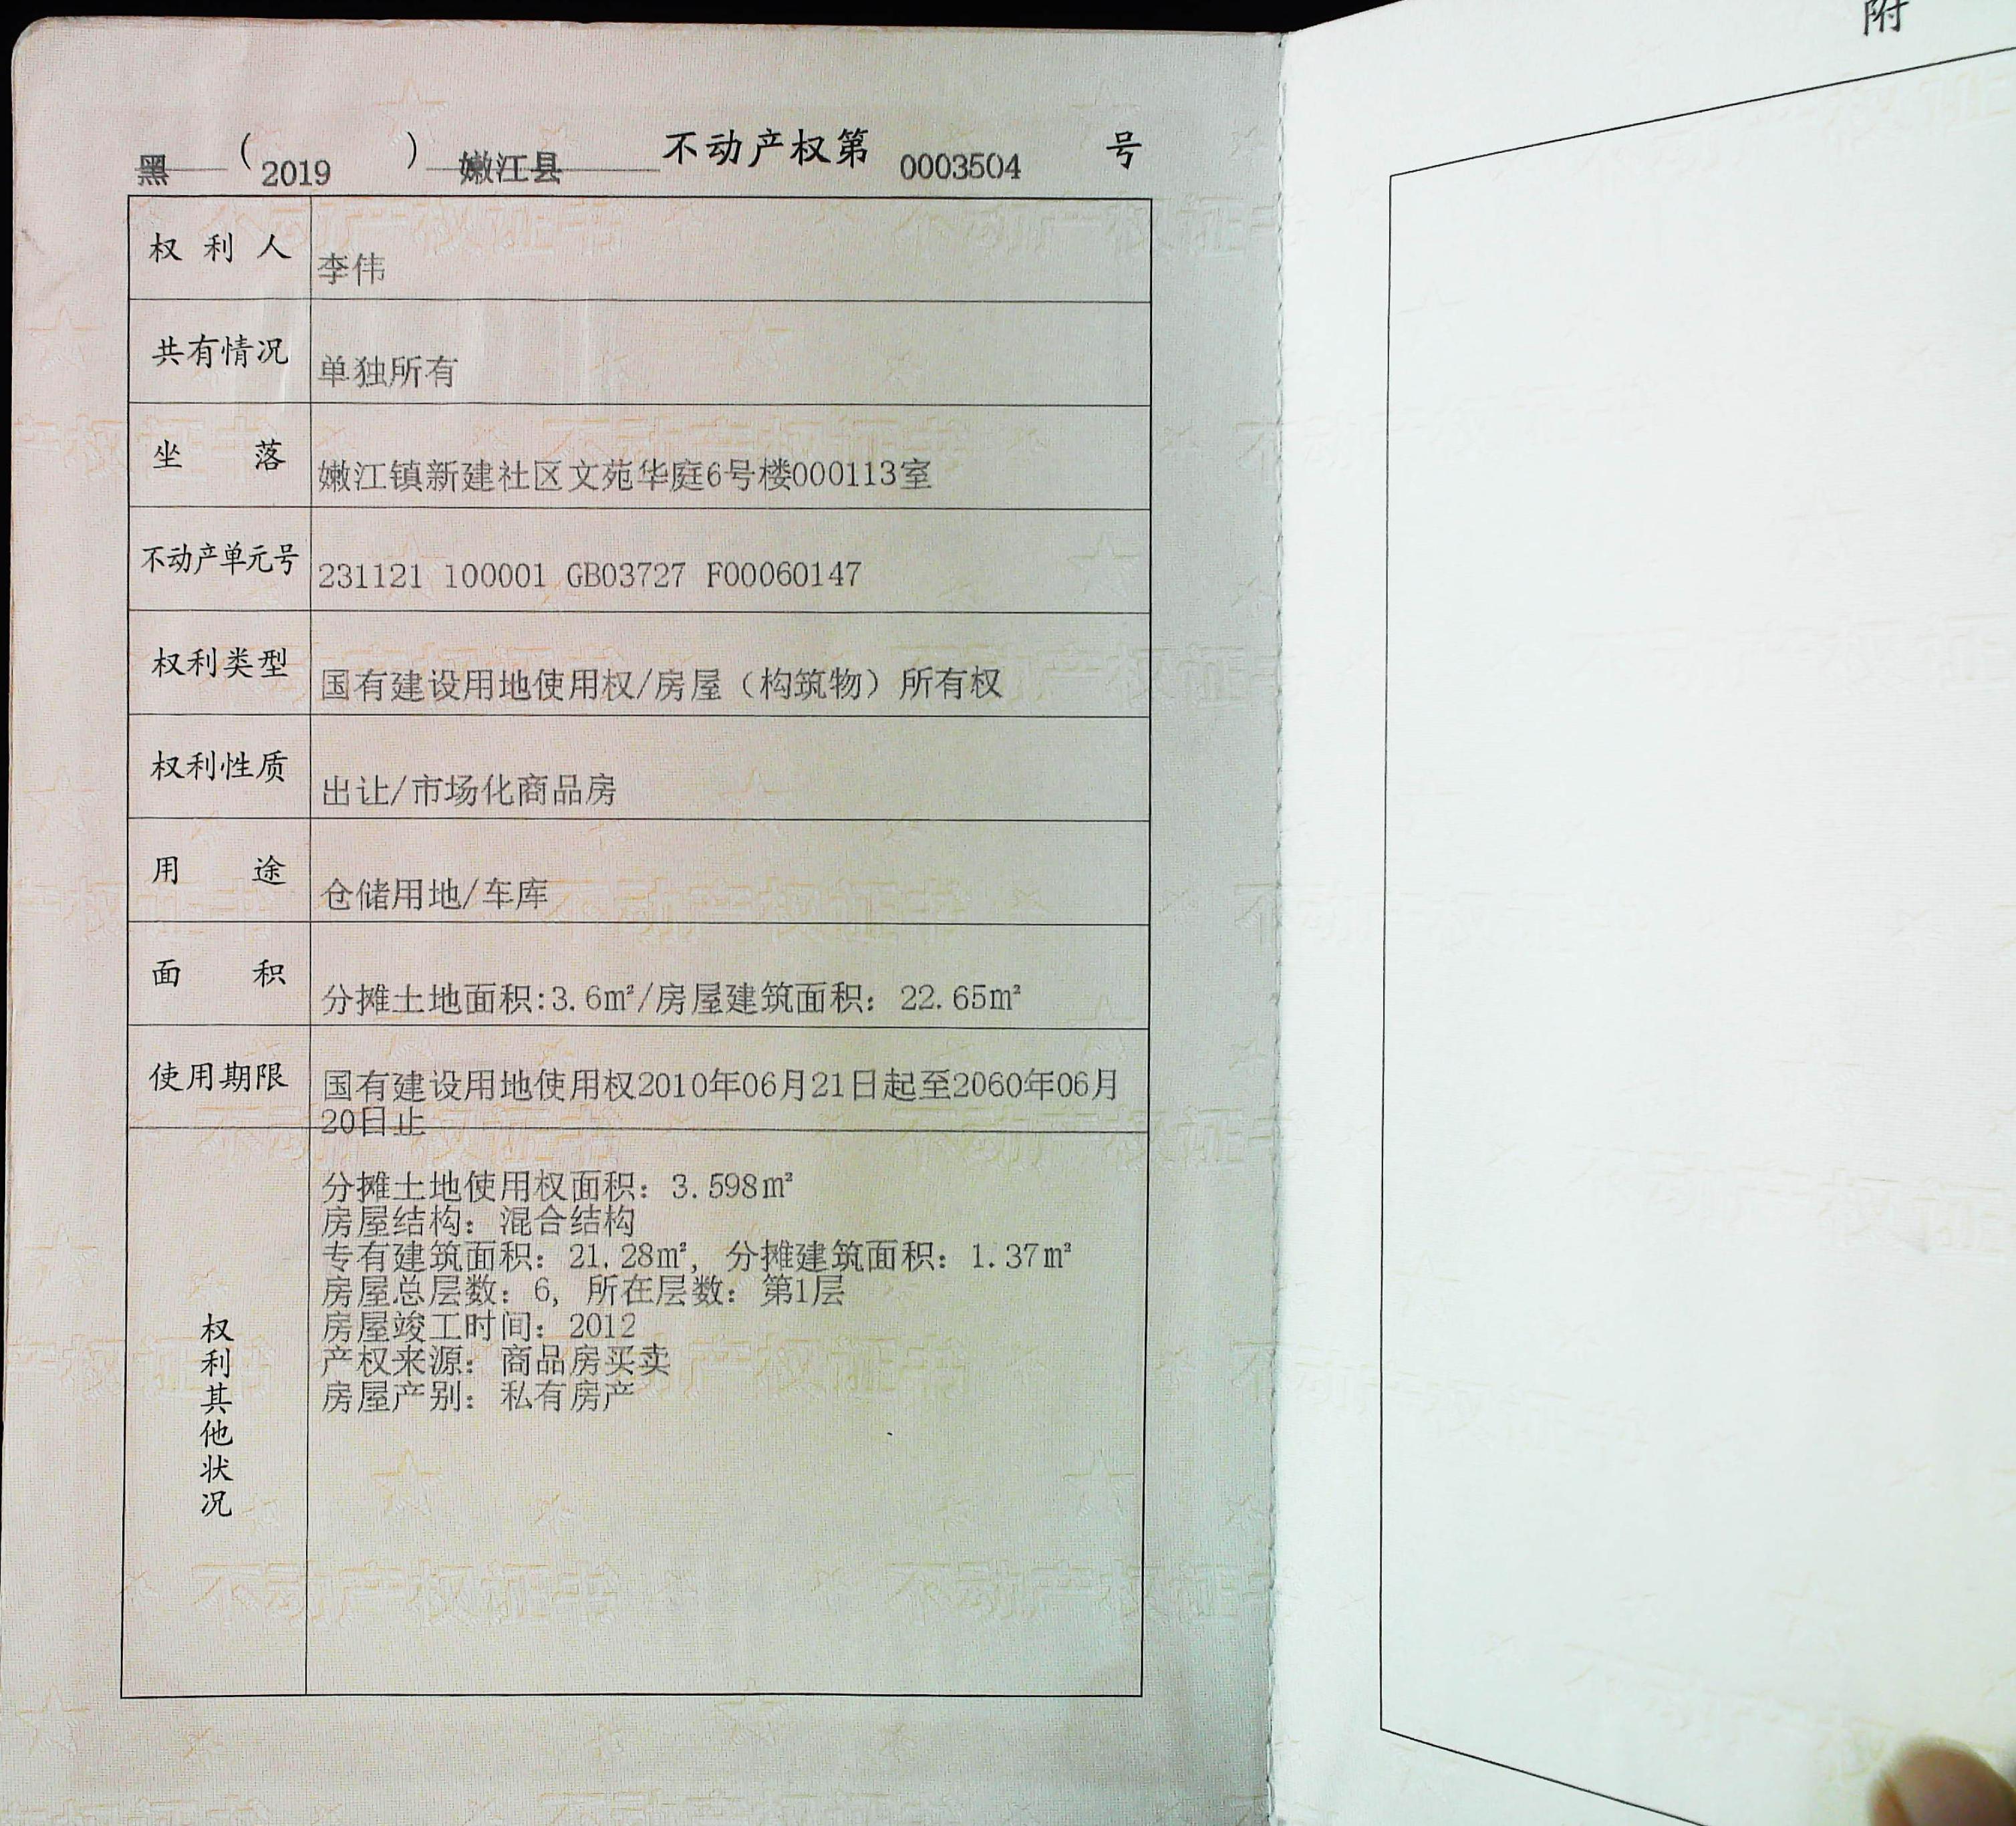 黑（2019）嫩江县不动产权第0003504号
权利人 李伟
共有情况 单独所有
坐落 嫩江镇新建社区文苑华庭6号楼000113室
不动产单元号 231121 100001 GB03727 F00060147
权利类型 国有建设用地使用权/房屋（构筑物）所有权
权利性质 出让/市场化商品房
用途 仓储用地/车库
面积 分摊土地面积:3.6㎡/房屋建筑面积：22.65㎡
使用期限 国有建设用地使用权2010年06月21日起至2060年06月
20日止
权利其他状况
分摊土地使用权面积：3.598㎡
房屋结构：混合结构
专有建筑面积：21.28㎡，分摊建筑面积：1.37㎡
房屋总层数：6，所在层数：第1层
房屋竣工时间：2012
产权来源：商品房买卖
房屋产别：私有房产
附